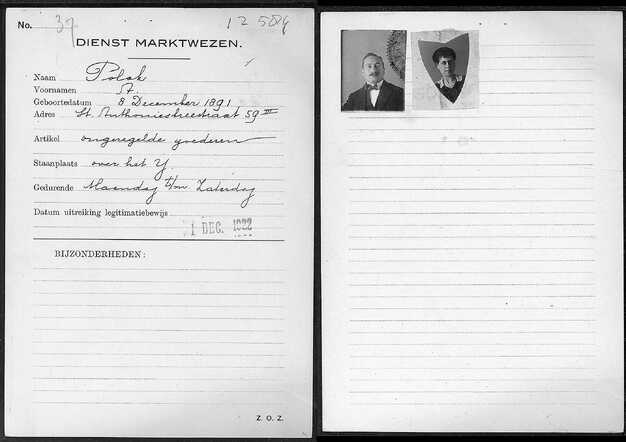 No. 37 12584
DIENST MARKTWEZEN.
Naam Polak
Voornamen A.
Geboortedatum 8 December 1891
Adres St. Anthoniesbreestraat 59 III
Artikel ongeregelde goederen
Staanplaats over het Y
Gedurende Maandag t/m Zaterdag
Datum uitreiking legitimatiebewijs
1 DEC. 1922
BIJZONDERHEDEN:
Z. O. Z.